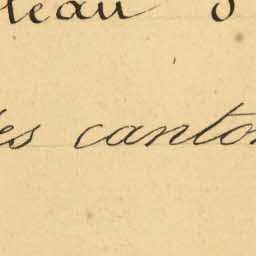 leau d
es canton